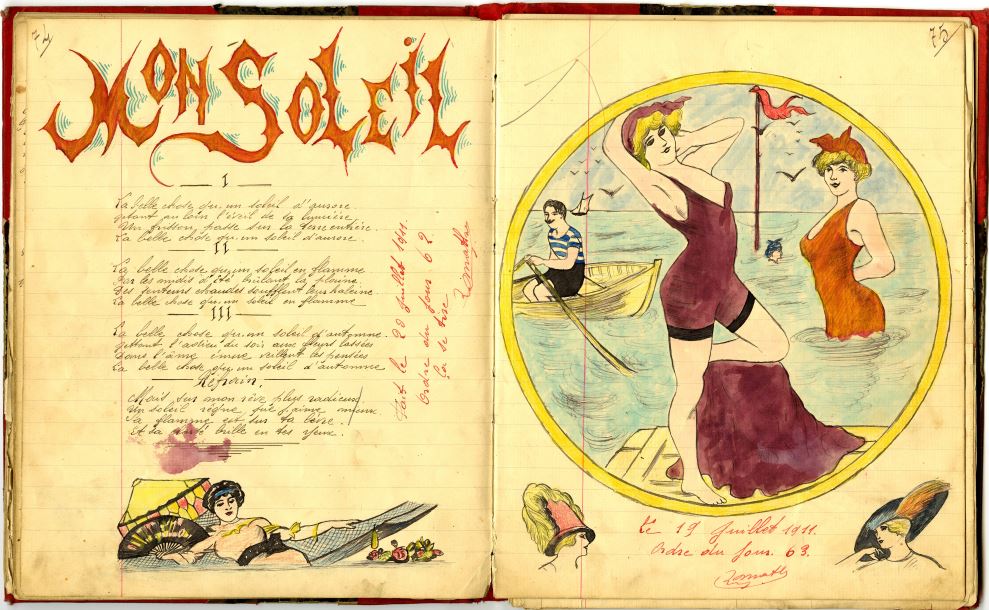 74
MON SOLEIL
I
La belle chose qu'un soleil d'aurore
jetant au loin l'éveil de la lumière
Un frisson passe sur la terre entière
La belle chose qu'un soleil d'aurore
II
La belle chose qu'un soleil en flamme
Par les midis d'été brûlant la plaine
Des senteurs chaudes soufflent leur haleine
La belle chose qu'un soleil en flamme
III
La belle chose qu'un soleil d'automne
jettant l'adieu du soir aux fleurs lassées
Dans l'âme émue veillent les pensées
La belle chose qu'un soleil d'automne
Refrain.
Mais sur mon rêve plus radieux
Un soleil règne, que j'aime mieux
Sa flamme est sur ta lèvre
Et sa clarté brille en tes yeux.
Fait le 20 juillet 1911.
Ordre du jour 62
Ça se tire
75
Le 19 Juillet 1911.
Ordre du Jour. 63.